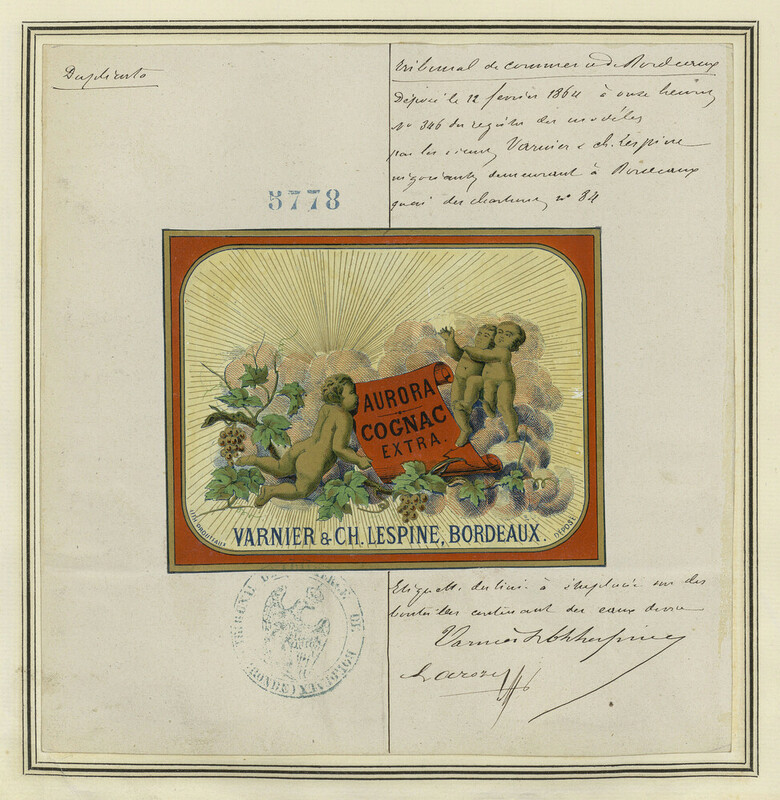 Duplicata
Tribunal de commerce de Bordeaux
Déposé le 12 février 1864 à onze heures
No 346 du registre des modèles
par les sieurs Varnier & ch. Lespine
négociants demeurant à Bordeaux
quai des chartrons no 84
5778
AURORA
COGNAC
EXTRA.
VARNIER & CH. LESPINE, BORDEAUX.
DÉPOSÉ
TRIBUNAL DE COMMERCE DE BORDEAUX (GIRONDE)
Etiquette destinée à être placée sur des
bouteilles contenant des eaux de vie
Varnier & Ch Lespine